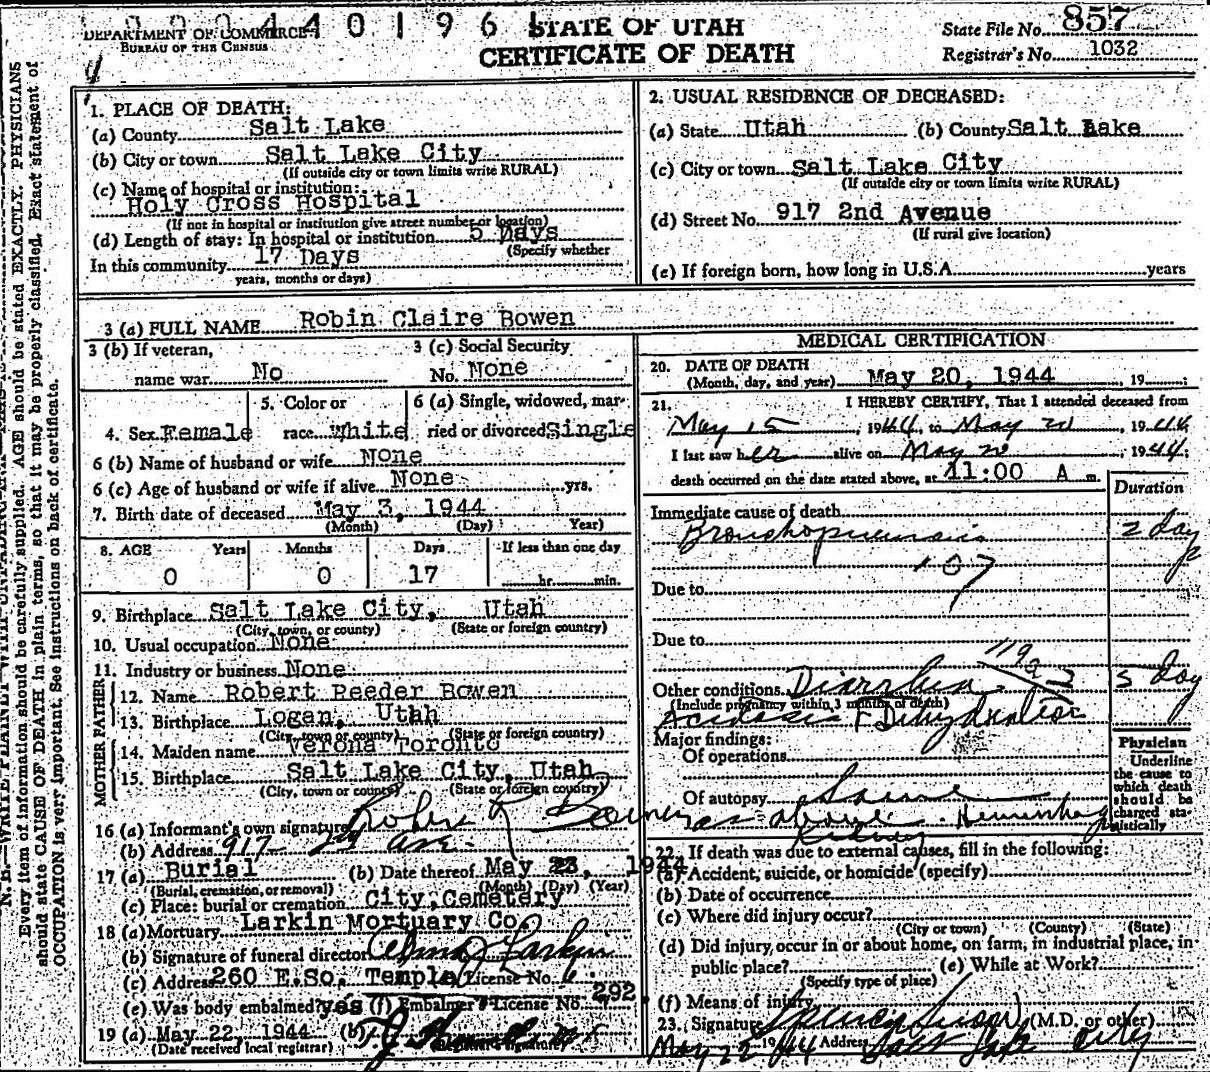 DEPARTMENT OF COMMERCE
BUREAU OF THE CENSUS
STATE OF UTAH
CERTIFICATE OF DEATH
State File No. 857
Registrar's No. 1032
1. PLACE OF DEATH:
(a) County Salt Lake
(b) City or town Salt Lake City
(If outside city or town limits write RURAL)
(c) Name of hospital or institution:
Holy Cross Hospital
(If not in hospital or institution give street number or location)
(d) Length of stay: In hospital or institution 5 Days
(Specify whether
In this community 17 Days
years, months or days)
2. USUAL RESIDENCE OF DECEASED:
(a) State Utah (b) County Salt Lake
(c) City or town Salt Lake City
(If outside city or town limits write RURAL)
(d) Street No. 917 2nd Avenue
(If rural give location)
(e) If foreign born, how long in U.S.A. years
3 (a) FULL NAME Robin Claire Bowen
3 (b) If veteran,
name war No
3 (c) Social Security
No. None
4. Sex Female
5. Color or
race White
6 (a) Single, widowed, mar-
ried or divorced Single
6 (b) Name of husband or wife None
6 (c) Age of husband or wife if alive None yrs.
7. Birth date of deceased May 3, 1944
(Month) (Day) Year)
8. AGE Years Months Days If less than one day
0 0 17 hr. min.
9. Birthplace Salt Lake City, Utah
(City, town, or county) (State or foreign country)
10. Usual occupation None
11. Industry or business None
FATHER
12. Name Robert Reeder Bowen
13. Birthplace Logan, Utah
(City, town or county) (State or foreign country)
MOTHER
14. Maiden name Verona Toronto
15. Birthplace Salt Lake City, Utah
(City, town or county) (State or foreign country)
16 (a) Informant's own signature Robert R Bowen
(b) Address 917 2nd Ave.
17 (a) Burial (b) Date thereof May 23, 1944
(Burial, cremation, or removal) (Month) (Day) (Year)
(c) Place: burial or cremation City Cemetery
18 (a) Mortuary Larkin Mortuary Co.
(b) Signature of funeral director Alma Larkin
(c) Address 260 E.So. Temple License No. 6
(e) Was body embalmed? yes (f) Embalmer's License No. 292
19 (a) May 22, 1944 (b)
(Date received local registrar)
MEDICAL CERTIFICATION
20. DATE OF DEATH
(Month, day, and year) May 20, 1944, 19
21. I HEREBY CERTIFY, That I attended deceased from
May 15, 1944, to May 20, 1944
I last saw her alive on May 20, 1944;
death occurred on the date stated above, at 11:00 A m.
Duration
Immediate cause of death
Bronchopneumonia 2 days
107
Due to
Due to
119
Other conditions Diarrhea 5 day
(Include pregnancy within 3 months of death)
Acidosis & Dehydration
Major findings:
Of operations
Of autopsy Same
as above. Hemorrhage
Kidney
Physician
Underline
the cause to
which death
should be
charged sta-
tistically
22. If death was due to external causes, fill in the following:
(a) Accident, suicide, or homicide (specify)
(b) Date of occurrence
(c) Where did injury occur?
(City or town) (County) (State)
(d) Did injury occur in or about home, on farm, in industrial place, in
public place? (e) While at Work?
(Specify type of place)
(f) Means of injury
23. Signature (M.D. or other)
May 22 1944 Address Salt Lake City
Every item of information should be carefully supplied. AGE should be stated EXACTLY. PHYSICIANS
should state CAUSE OF DEATH in plain terms, so that it may be properly classified. Exact statement of
OCCUPATION is very important. See instructions on back of certificate.